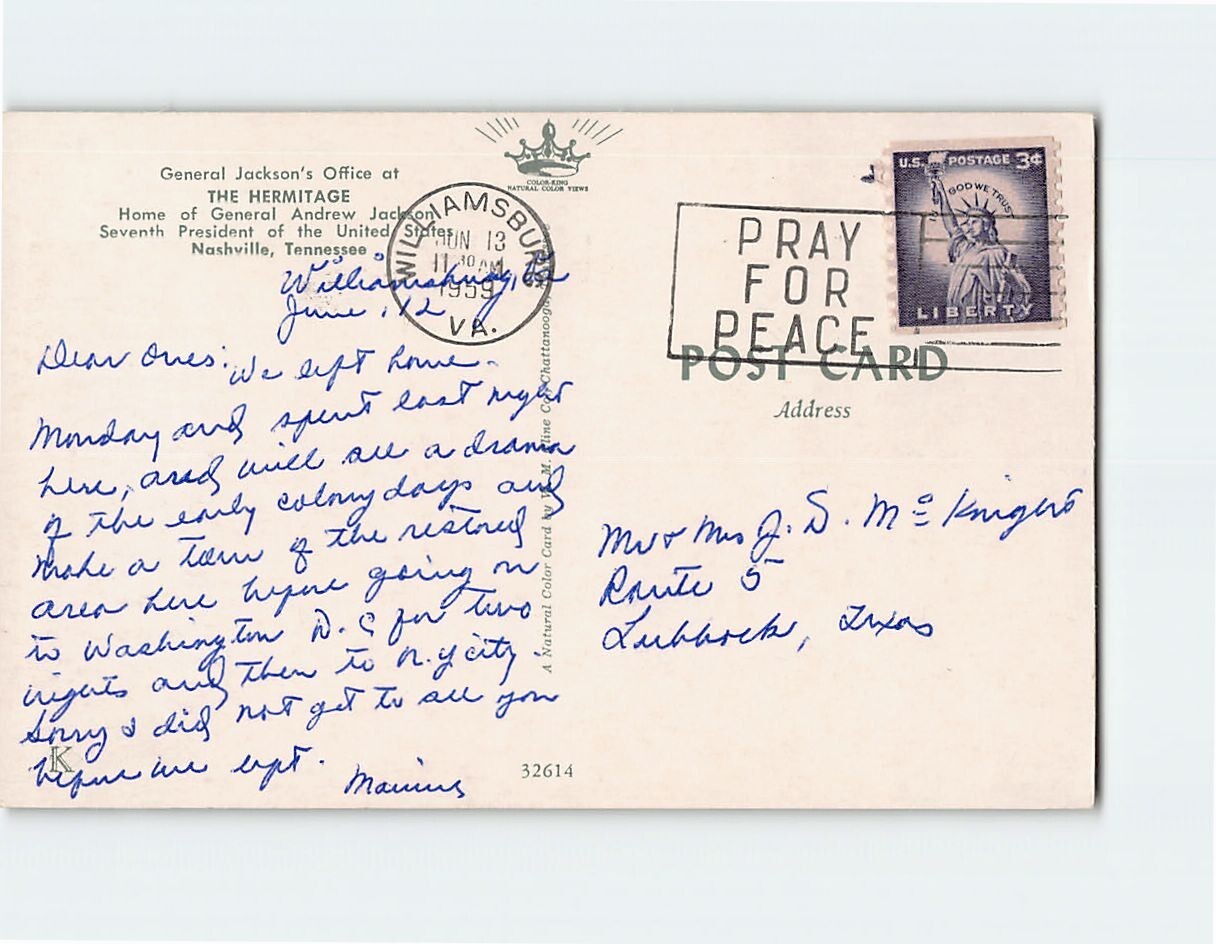 General Jackson's Office at
THE HERMITAGE
Home of General Andrew Jackson
Seventh President of the United States
Nashville, Tennessee
COLOR-KING
NATURAL COLOR VIEWS
WILLIAMSBURG
JUN 13
11 30 AM
1959
VA.
PRAY
FOR
PEACE
U.S. POSTAGE 3¢
IN GOD WE TRUST
LIBERTY
POST CARD
Address
Williamsburg, Va
June, 12
Dear Ones: We left home
Monday and spent last night
here, and will see a drama
of the early colony days and
make a tour of the restored
area here before going on
to Washington D.C for two
nights and then to N.Y city.
Sorry I did not get to see you
before we left.
Mr & Mrs J. D. Mc Knight
Route 5
Lubbock, Texas
A Natural Color Card by W. M. Cline Co., Chattanooga,
K
32614